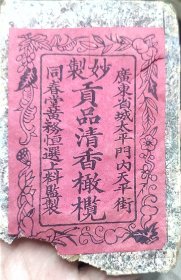 廣東省城太平門內天平街
妙製
貢品清香橄欖
同春堂黃務恒選料監製